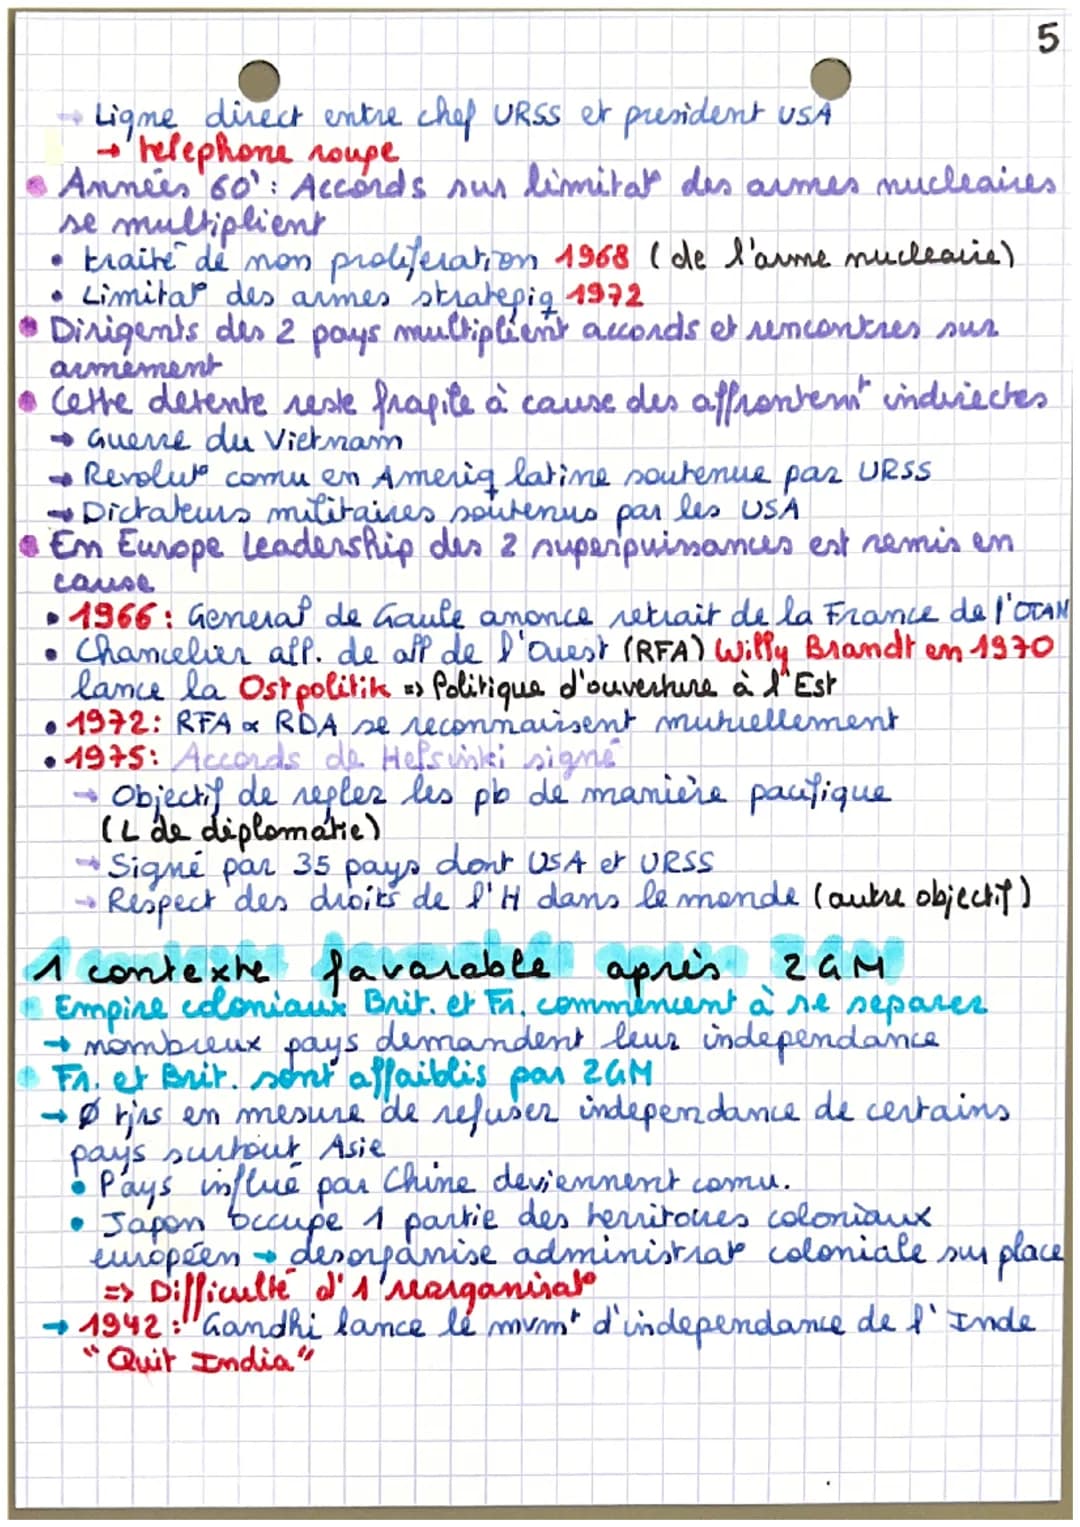 5
→ Ligne direct entre chef URSS et president USA
→ telephone rouge
Années 60' : Accords sur limitat° des armes nucleaires
se multiplient
• traité de non proliferation 1968 (de l'arme nucleaire)
• Limitat° des armes strategiq 1972
Dirigents des 2 pays multiplient accords et rencontres sur
armement
Cette detente reste fragile à cause des affrontemt indirectes
→ Guerre du Vietnam
→ Revolut° comu en Ameriq latine soutenue par URSS
→ Dictateurs militaires soutenus par les USA
En Europe Leadership des 2 superpuissances est remis en
cause
• 1966 : General de Gaule anonce retrait de la France de l'OTAN
• Chancelier all. de all de l'Ouest (RFA) Willy Brandt en 1970
lance la Ostpolitik => Politique d'ouverture à l'Est
• 1972 : RFA & RDA se reconnaissent mutuellement
• 1975 : Accords de Helsinki signé
→ Objectif de regler les pb de manière pacifique
(L de diplomatie)
→ Signé par 35 pays dont USA et URSS
→ Respect des droits de l'H dans le monde (autre objectif)
1 contexte favorable après 2GM
Empire coloniaux Brit. et Fr. commencent à se separer
→ nombreux pays demandent leur independance
Fr. et Brit. sont affaiblis par 2GM
→ Ø tjrs en mesure de refuser independance de certains
pays surtout Asie
• Pays influé par Chine deviennent comu.
• Japon occupe 1 partie des territoires coloniaux
européen → desorganise administrat° coloniale sur place
=> Difficulté d'1 reorganisat°
→ 1942 : Gandhi lance le mvmt d'independance de l'Inde
"Quit India"